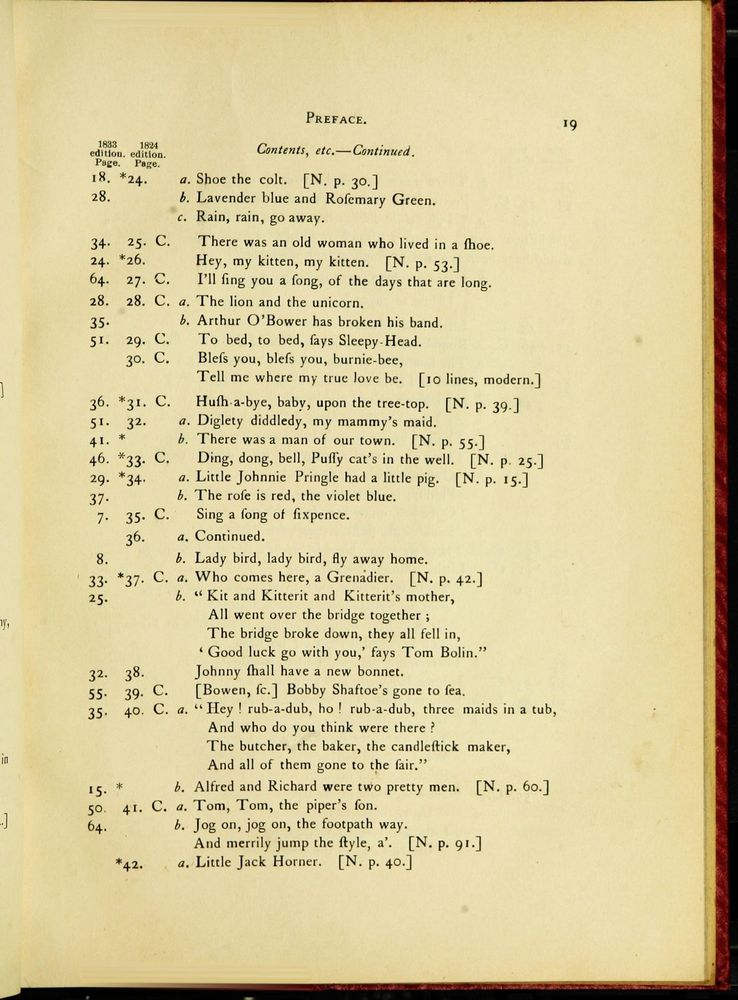 PREFACE. 19
1833 1824
edition. edition. Contents, etc.—Continued.
Page. Page.
18. *24. a. Shoe the colt. [N. p. 30.]
28. b. Lavender blue and Roſemary Green.
c. Rain, rain, go away.
34. 25. C. There was an old woman who lived in a ſhoe.
24. *26. Hey, my kitten, my kitten. [N. p. 53.]
64. 27. C. I'll ſing you a ſong, of the days that are long.
28. 28. C. a. The lion and the unicorn.
35. b. Arthur O'Bower has broken his band.
51. 29. C. To bed, to bed, ſays Sleepy-Head.
30. C. Bleſs you, bleſs you, burnie-bee,
Tell me where my true love be. [10 lines, modern.]
36. *31. C. Huſh-a-bye, baby, upon the tree-top. [N. p. 39.]
51. 32. a. Diglety diddledy, my mammy's maid.
41. * b. There was a man of our town. [N. p. 55.]
46. *33. C. Ding, dong, bell, Puſſy cat's in the well. [N. p. 25.]
29. *34. a. Little Johnnie Pringle had a little pig. [N. p. 15.]
37. b. The roſe is red, the violet blue.
7. 35. C. Sing a ſong of ſixpence.
36. a. Continued.
8. b. Lady bird, lady bird, fly away home.
33. *37. C. a. Who comes here, a Grenadier. [N. p. 42.]
25. b. “ Kit and Kitterit and Kitterit's mother,
All went over the bridge together ;
The bridge broke down, they all fell in,
‘ Good luck go with you,’ ſays Tom Bolin.”
32. 38. Johnny ſhall have a new bonnet.
55. 39. C. [Bowen, ſc.] Bobby Shaftoe's gone to ſea.
35. 40. C. a. “ Hey ! rub-a-dub, ho ! rub-a-dub, three maids in a tub,
And who do you think were there ?
The butcher, the baker, the candleſtick maker,
And all of them gone to the fair.”
15. * b. Alfred and Richard were two pretty men. [N. p. 60.]
50. 41. C. a. Tom, Tom, the piper's ſon.
64. b. Jog on, jog on, the footpath way.
And merrily jump the ſtyle, a'. [N. p. 91.]
*42. a. Little Jack Horner. [N. p. 40.]